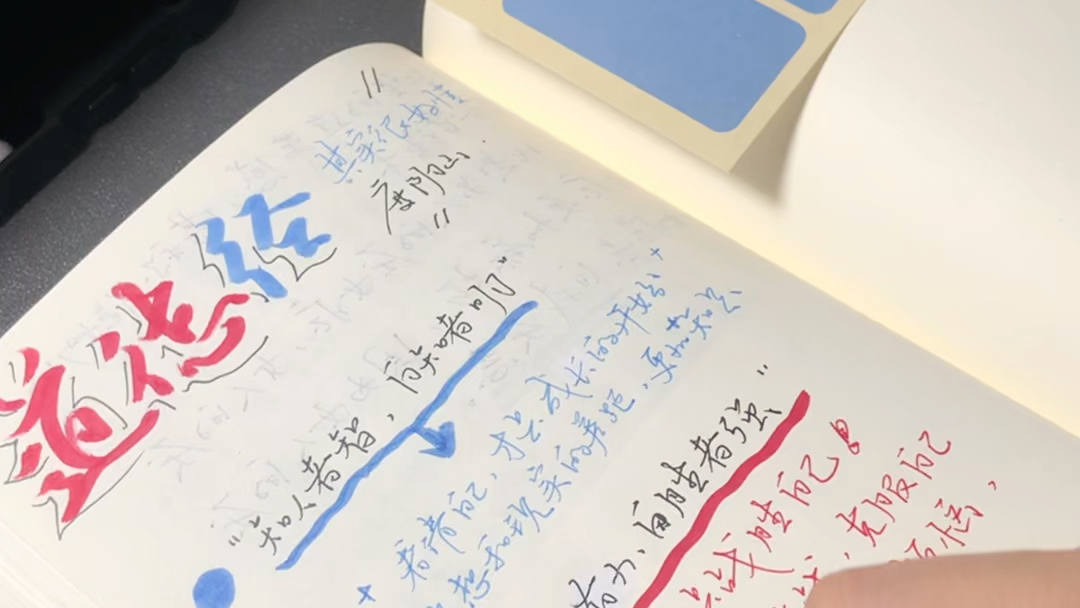 道德经
其实很好懂
度阴山
"知人者智，自知者明"
看清自己，才是成长的开始
想和现实的差距，更加知足
有力，自胜者强"
战胜自己
克服自己